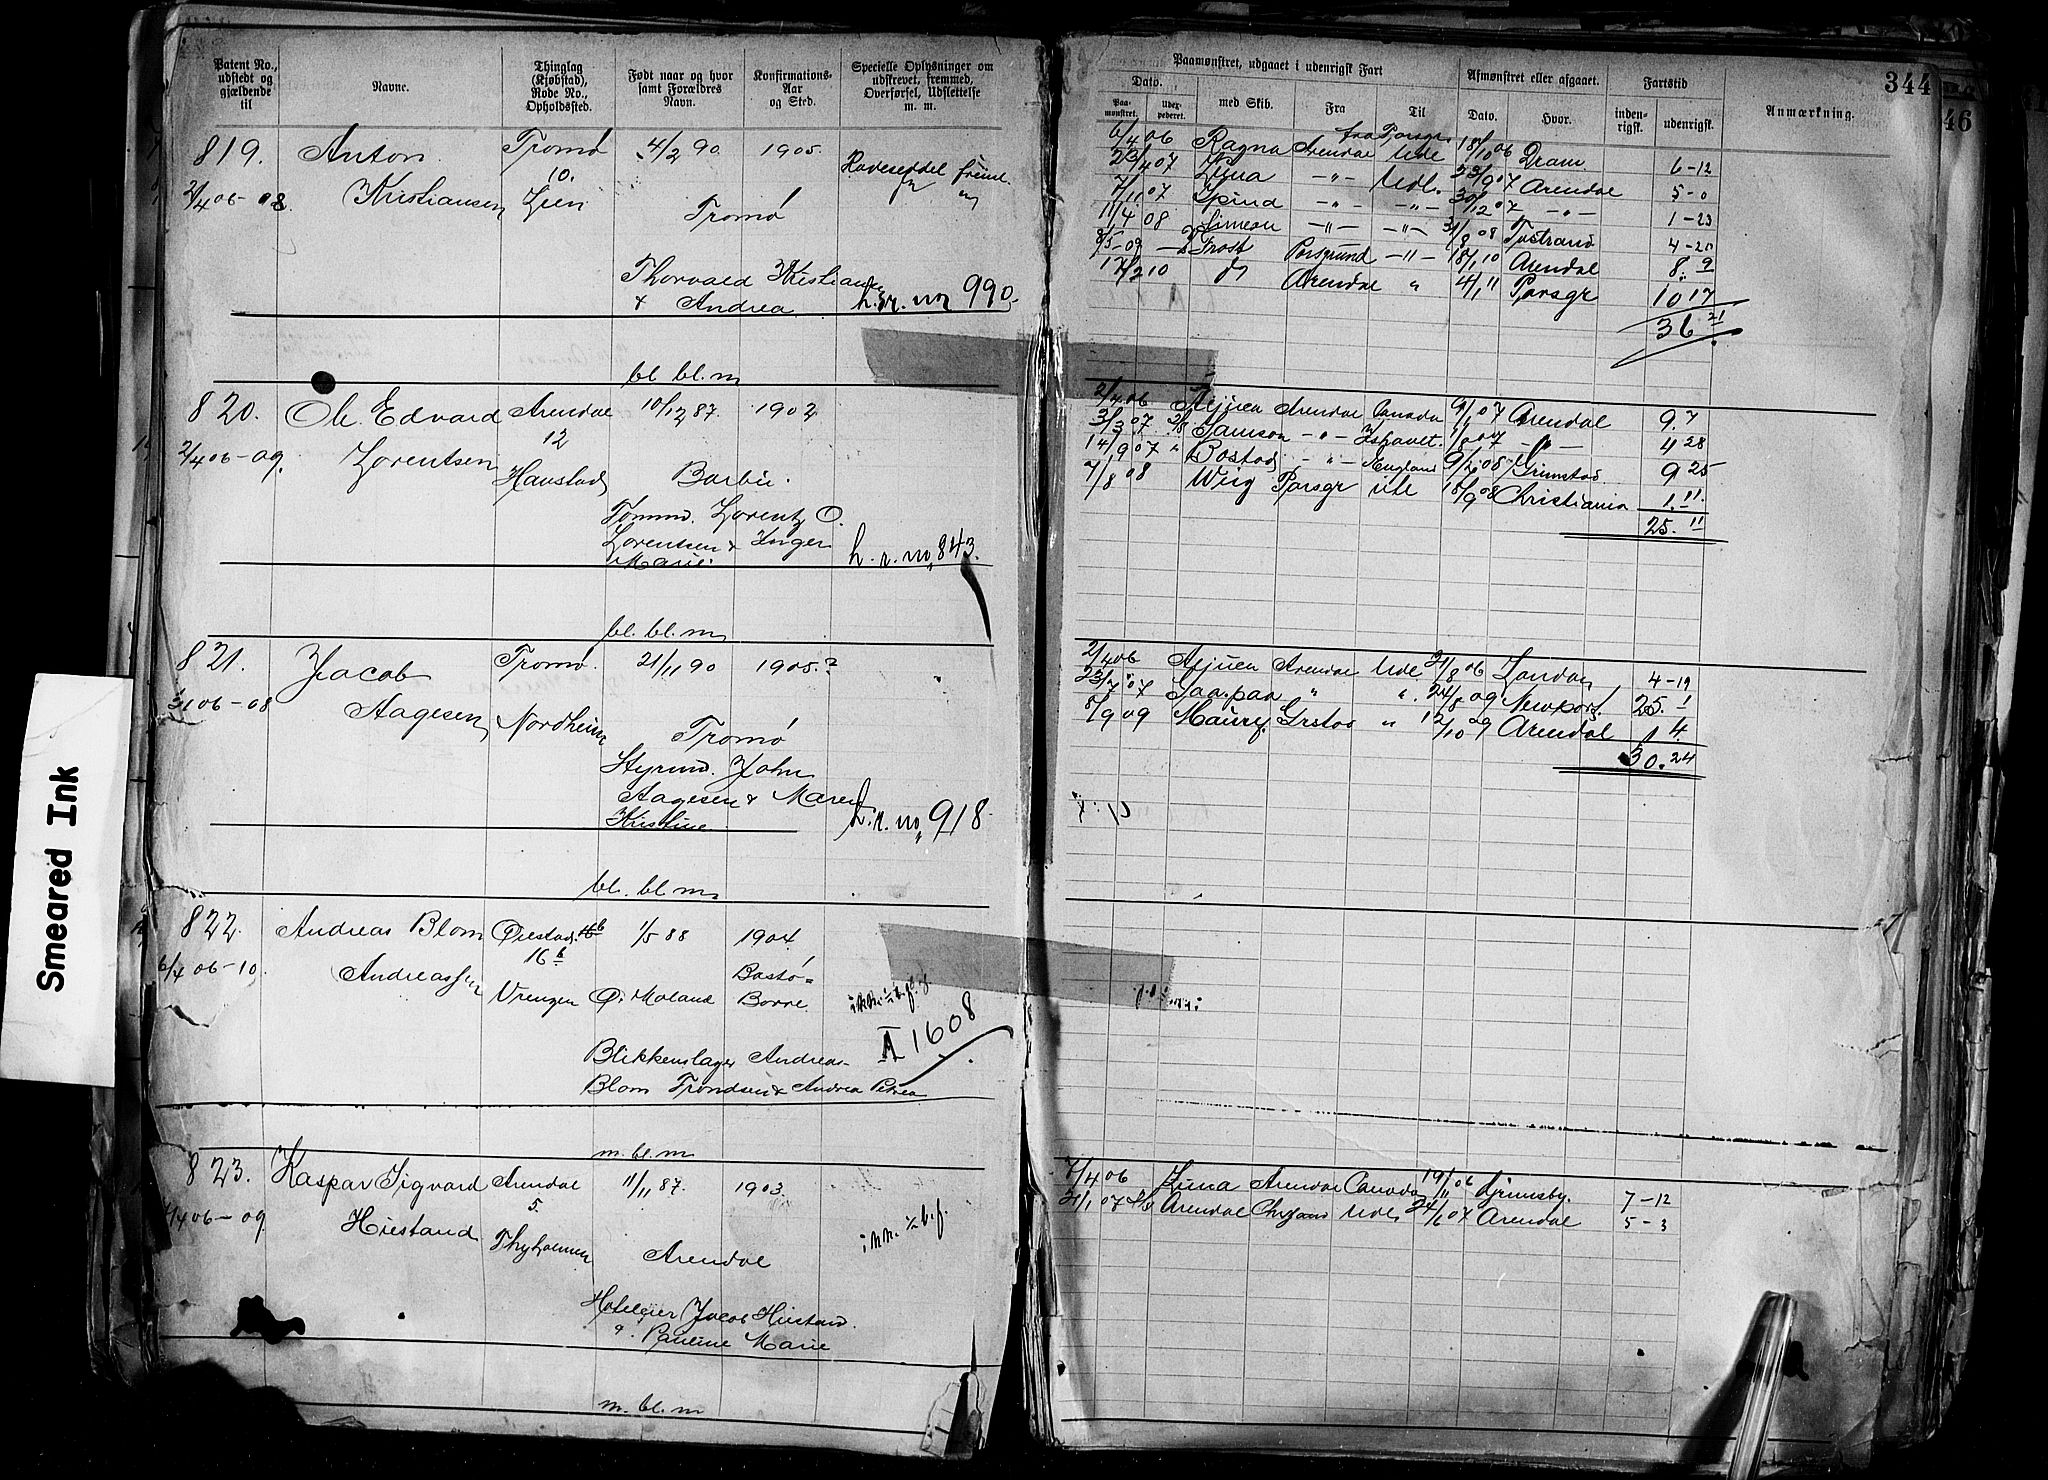 Patent No.,
udstedt og
gjældende
til
Navne.
Thinglag
(Kjøbstad),
Rode No.,
Opholdssted.
Født naar og hvor
samt Forældres
Navn.
Konfirmations-
Aar
og Sted.
Specielle Oplysninger om
udskrevet, fremmed,
Overførsel, Udslettelse
m. m.
819.
Anton
Tromø
4/2 90
1905
10.
2/4 06-08
Kristiansen
Tromø
Thorvald Kristiansen
& Andrea
h. r. no 990.
bl. bl. m
820.
Ole Edvard
Arendal
10/12 87.
1902
12
2/4 06-09.
Lorentsen
Havstad
Barbu.
Tømmd. Lorentz O.
Lorentsen & Inger
Marie.
h. r. no 843.
bl. bl. m
821.
Jacob
Tromø.
21/11 90
1905.?
Aagesen
Nordheim
Tromø
Styrmd. John
Aagesen & Maren
Kristine
h. r. no 918
bl. bl. m
822.
Andreas Blom
Øiestad.
1/5 88
1904
16 b
6/4 06-10.
Andreassen
Vrengen
Ø. Moland
Bastø-
Borre.
II 1608
Blikkenslager Andreas
Blom Trondsen & Andrea Petrea
m. bl. m
823.
Kaspar Sigvard
Arendal
11/11 87.
1903.
5.
Hiestand
Thyholmen
Arendal
Hotelejer Jacob Hiestand
& Pauline Marie
m. bl. m
Smeared Ink
344
46
Paamønstret, udgaaet i udenrigsk Fart
Afmønstret eller afgaaet.
Fartstid
Anmærkning.
Dato.
Paa-
mønstret.
Udex-
pederet.
med Skib.
Fra
Til
Dato.
Hvor.
inden-
rigsk.
udenrigsk.
fra Porsgr.
6/4 06 Ragna Arendal Ude 18/10 06 Dram. 6-12
23/4 07 Luna -"- Udl. 23/9 07 Arendal 5-0
7/11 07 -"- -"- 30/12 07 -"- 1-23
11/4 08 Simeon -"- -"- 31/8 08 4-20
8/5-09 Frost Porsgrund -"- 18/1 10 Arendal 8. 9
17/2 10 Arendal " 4/1 11 Porsgr 10 17
36. 21
2/4 06 Arendal Canada 9/1 07 Arendal 9. 7
31/3 07 Samson -"- Ishavet. -"- 4 28
14/9 07 Bastad -"- England 08 Grimstad 9 25
7/8 08 Porsgr Ude 18/9 08 Christiania 1. 11
25. 11
2/4 06 Arendal Ude 21/8 06 London 4-19
23/7 07 " " 24/8 09 Newport. 25. 1
8/9 09 " 12/10 09 Arendal 1 4.
30. 24
7/4 06 Luna Arendal Canada 19/11 06 Grimsby. 7-12
21/1 07 Arendal Chrsand Udl. 24/6 07 Arendal 5-3